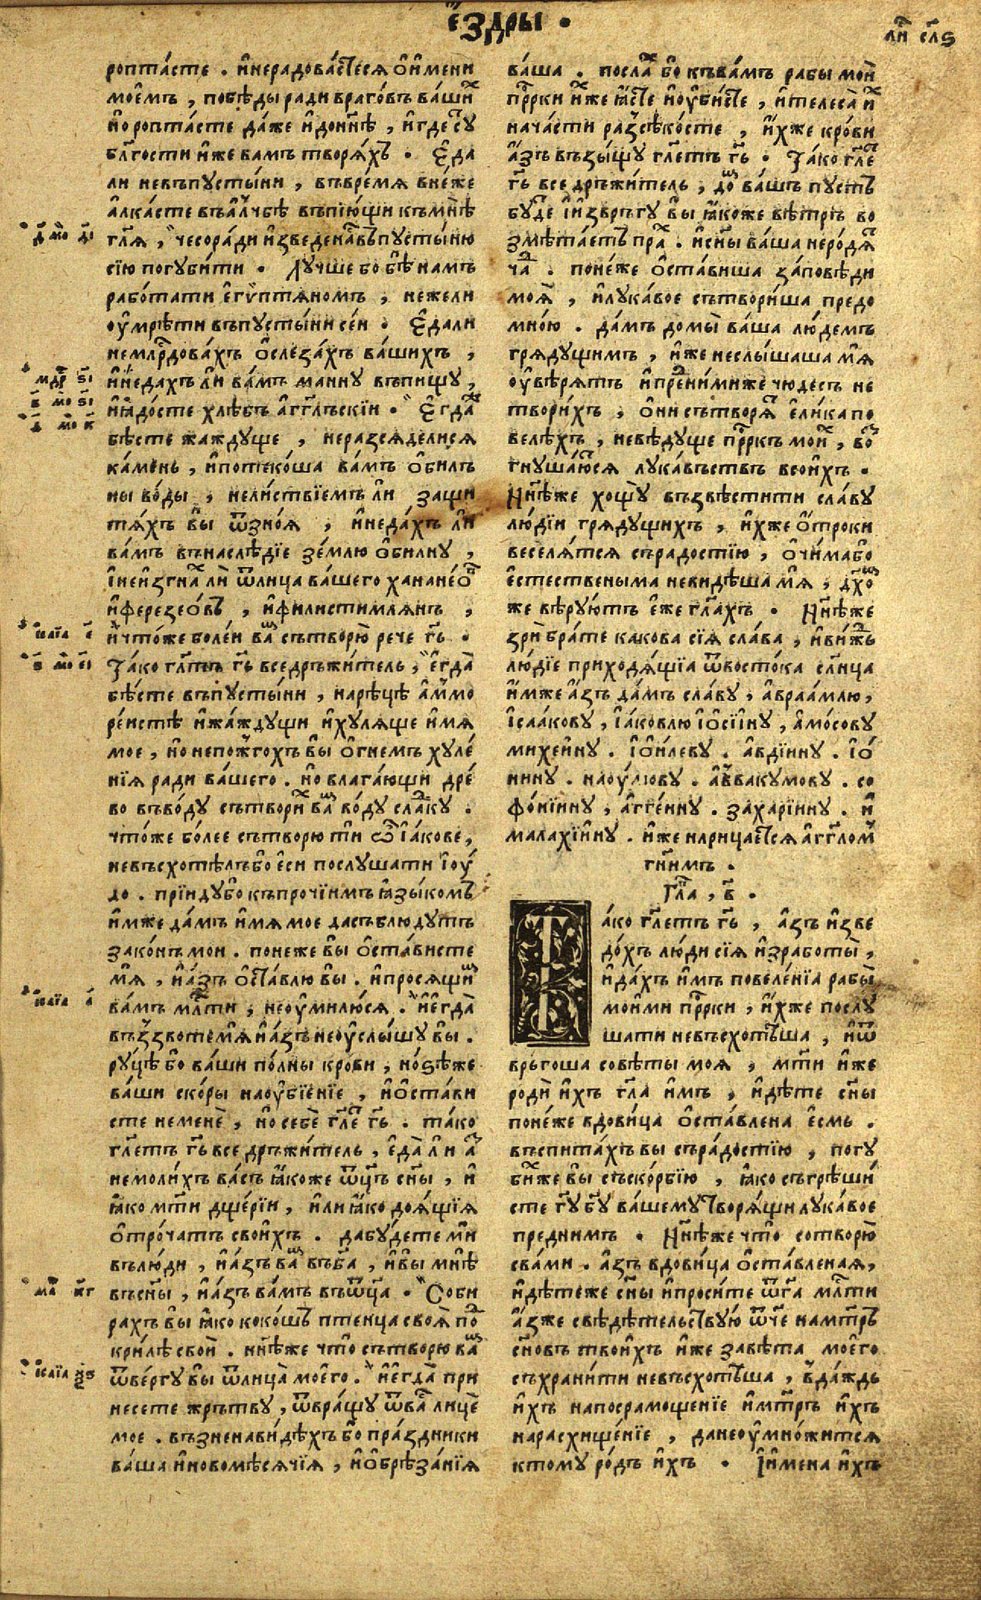 е҆́здры .
роптасте . и҆нерадова́стеся ѡ҆и҆мени
мое҆мъ , побѣ́ды ради враго́въ ва́шиⷯ
и҆о роптáсте да́же и҆дони҃нѣ , и҆где сꙋ
бл҃гости и҆же вамъ творя́хъ . Є҆да
ли невъпꙋсты́ни , въвре́мя вне́же
а҆лка́сте въа҆́лчбѣ въпїю́щи къмнѣ̀
гл҃я , чесора́ди и҆зведенаⷭ҇ въпꙋсты́ню
сїю погꙋби́ти . Лꙋ́чше бо бѣ̀ намъ
рабо́тати е҆гѵ́птяномъ , нежели
оу҆мрѣ́ти въпꙋсты́ни се́и . Є҆дали
немлⷭ҇рдова́хъ ѡ҆слеза́хъ ва́шихъ ,
и҆недахъ ли вáмъ маннꙋ въпищꙋ ,
и҆ꙗ҆до́сте хлѣ́бъ а҆́гг҃льскїи . Є҆гда̀
бѣсте жаждꙋще , неразсяделися
ка́мень , и҆потеко́ша ва́мъ ѻ҆би́лъ
ны во́ды , нели́ствїемъ ли защи
тя́хъ вы̀ ѿзно́я , и҆недáхъ ли
ва́мъ вънаслѣ́дїе зе́млю ѻ҆би́лнꙋ ,
І҆неи҆згнаⷯ ли ѿлица ва́шего ханане́ѡⷡ
и҆ферезео́въ , и҆филистимля́нъ ,
и҆чтоже боле́и ваⷨ сътворю̀ рече гь҃ .
Ꙗ҆ко гл҃тъ гь҃ вседръжи́тель , є҆гда̀
бѣсте въпꙋсты́ни , нарѣцѣ̀ а҆́ммо
ре́истѣ и҆жа́ждꙋщи и҆хꙋля́ще и҆мя
мое , и҆о непожго́хъ вы ѻ҆гнемъ хꙋле́
нїя ради ва́шего . и҆о влага́ющи дре́
во въво́дꙋ сътвориⷯ ваⷨ во́дꙋ слаⷣкꙋ .
что́же бо́лее сътворю ти ѽ І҆а́кове ,
невъсхотѣ́лъбо є҆си послꙋшати І҆оу́
до . прїидꙋ́бо къпро́чїимъ ꙗ҆зы́комъ
и҆мже да́мъ и҆мя мое дасъблюдꙋтъ
зако́нъ мои . поне́же вы ѻ҆ста́висте
мя̀ , и҆а҆зъ ѻ҆ста́влю вы . и҆прося́щиⷨ
ва́мъ млⷭ҇ти , неоу҆милю́ся . и҆є҆гда̀
възъзвотемя и҆а҆зъ неоу҆слы́шꙋ вы .
рꙋцѣ бо ва́ши по́лны крови , и҆оѕѣ́же
ва́ши ско́ры наоу҆бїе́нїе , и҆ѡ҆ста́ви
сте неменѐ , и҆о себѐ гл҃е гь҃ . та́ко
гл҃етъ гь҃ вседръжи́тель , є҆да̀ ли аⷥ
немоли́хъ ва́съ ꙗ҆коже ѿц҃ъ сн҃ы , и҆
ꙗ҆ко мт҃и дще́рїи , и҆ли ꙗ҆ко доя́щїя
ѻ҆тро́чатъ свои́хъ . дабꙋ́дете мѝ
вълю́ди , и҆а҆зъ ваⷨ въбг҃а , и҆вы мнѣ̀
въсн҃ы , и҆а҆зъ ва́мъ въѿц҃а . Соби
рахъ вы ꙗ҆ко кокошъ птенца своя поⷣ
крилѣ свои . нинѣже что̀ сътворю ваⷨ
ѿве́ргꙋ вы ѿлица̀ мое҆го . и҆є҆гда̀ при
несете жрътвꙋ , ѿвра́щꙋ ѿваⷭ҇ лицѐ
мое . възненави́дѣхъ бо пра́здники
ва́ша и҆новомѣ́сячїя , и҆ѻ҆брѣза́нїя
д҃ мо҃ д҃і
мдрⷭ҇ ѕ҃і
в҃ мо҃ ѕ҃і
д҃ мо҃ к҃
и҆са́їа є҃
в҃ мо҃ є҃і
и҆са́їа а҃
маⷴ к҃г
и҆са́їа ѯ҃ѕ
лиⷭ҇ сл҃ѕ
ва́ша . послаⷯ бо къва́мъ рабы моѝ
прⷪ҇рки и҆́же ꙗ҆́сте и҆оу҆би́сте , и҆телеса̀ иⷯ
нача́сти разсѣко́сте , и҆́хже кро́ви
а҆́зъ възы́щꙋ гл҃етъ гь҃ . Ꙗ҆ко гл҃еⷮ
гь҃ вседръжи́тель , доⷨ ва́шъ пꙋстъ
бꙋ́де І҆и҆зврьгꙋ вы ꙗ҆коже вѣтръ во
змѣта́етъ праⷯ . и҆сн҃ы ваша неродяⷮ
чаⷣ . поне́же ѻ҆ста́виша за́повѣди
моя̀ , и҆лꙋка́вое сътвори́ша предо
мно́ю . да́мъ домы̀ ва́ша лю́демъ
грядꙋ́щимъ , и҆же неслы́шаша мя̀
оу҆вѣрятъ и҆пре́ними́же чюдесъ не
твори́хъ , ѻ҆ни сътворяⷮ є҆ли́ка по
велѣхъ , невѣдꙋще прⷪ҇ркъ моиⷯ , воⷥ
гнꙋша́юся лꙋка́въствъ всои҆хъ .
Нн҃ѣже хощꙋ̀ възвѣстити сла́вꙋ
лю́дїи грядꙋщихъ , и҆хже ѻ҆троки
веселя́тся съра́достїю , ѻ҆чи́мабо
є҆сте́ственыма неви́дѣша мя̀ , дх҃оⷨ
же вѣрꙋ́ютъ є҆же гл҃ахъ . Нн҃ѣже
зрѝ бра́те какова сїя сла́ва , и҆ви́жъ
лю́дїе приходя́щїа ѿвосто́ка сл҃нца
и҆́мже а҆́зъ да́мъ сла́вꙋ , а҆враа́млю ,
І҆саа́ковꙋ , І҆а́ковлю І҆ѡ҆сі́инꙋ , а҆мо́совꙋ
михе́инꙋ . І҆ѻ҆и́левꙋ . а҆вді́инꙋ . І҆ѡ҆́
нинꙋ . наоу́мовꙋ . а҆ввакꙋмовꙋ . со
фо́ніинꙋ , а҆гге́инꙋ . заха́рїинꙋ . и҆
малахі́инꙋ . и҆же нарицае́тся а҆гг҃ломъ
гн҃имъ .
Гл҃а , в҃ .
Ꙗ҆́ко гл҃етъ гь҃ , а҆зъ и҆зве
до́хъ лю́ди сїя и҆зработы̀ ,
и҆да́хъ и҆мъ повеле́нїа рабы̀
мои́ми прⷪ҇рки , и҆хже послꙋ
шати невъсхотѣша , и҆ѿ
врьгоша совѣты моя , мт҃и и҆же
родѝ и҆хъ гл҃а и҆мъ , и҆дѣте сн҃ы
поне́же вдови́ца ѻ҆ста́влена є҆смь .
въспита́хъ вы съра́достїю , погꙋ
би́хже вы съско́рбїю , ꙗ҆ко съгрѣши́
сте гꙋ҃ бг҃ꙋ ва́шемꙋ творя́щи лꙋка́вое
предни́мъ . Нн҃ѣже что̀ сотворю̀
сва́ми . а҆зъ вдови́ца ѻ҆ста́вленая ,
и҆дѣ́теже сн҃ы и҆проси́те ѿг҃а млⷭ҇ти
а҆́зже свѣдѣтельствꙋю ѿче наматръ
сн҃овъ твои́хъ и҆же завѣта мое҆го
съхрани́ти невъсхотѣша , вда́ждь
и҆хъ напосрамощенїе и҆ма́тръ и҆хъ
нарасхищѐнїе , данеоу҆мно́жится
ктомꙋ ро́дъ и҆хъ . І҆и҆мена и҆хъ